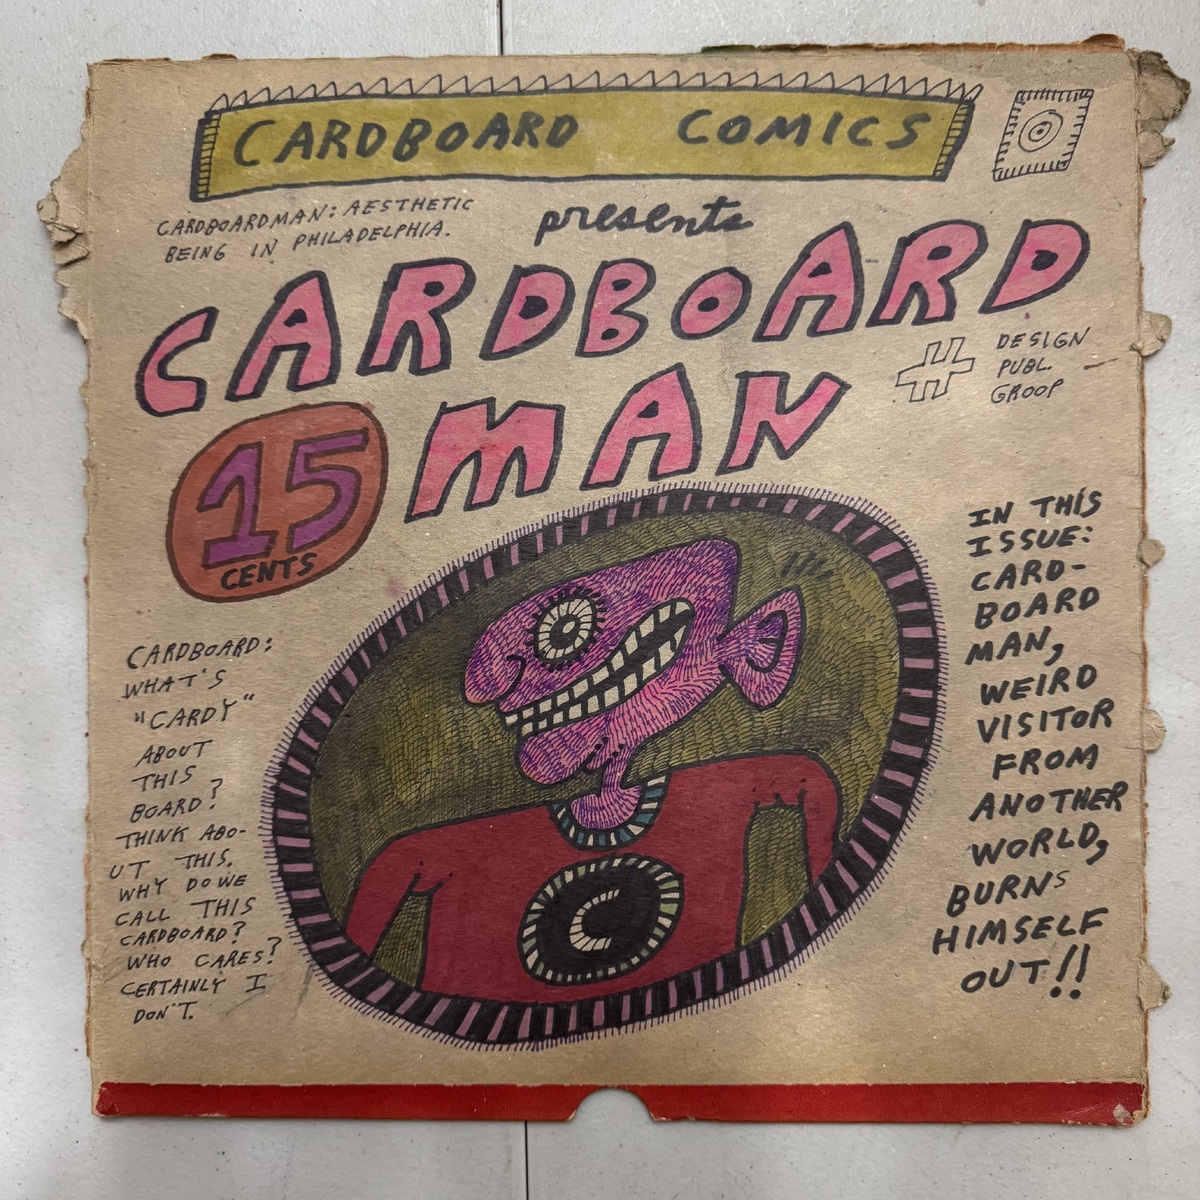 CARDBOARD COMICS
CARDBOARDMAN: AESTHETIC
BEING IN PHILADELPHIA.
presents
CARDBOARD
MAN
# DESIGN
PUBL.
GROOP
15
CENTS
CARDBOARD:
WHAT'S
"CARDY"
ABOUT
THIS
BOARD?
THINK ABO-
UT THIS.
WHY DO WE
CALL THIS
CARDBOARD?
WHO CARES?
CERTAINLY I
DON'T.
C
IN THIS
ISSUE:
CARD-
BOARD
MAN,
WEIRD
VISITOR
FROM
ANOTHER
WORLD,
BURNS
HIMSELF
OUT!!